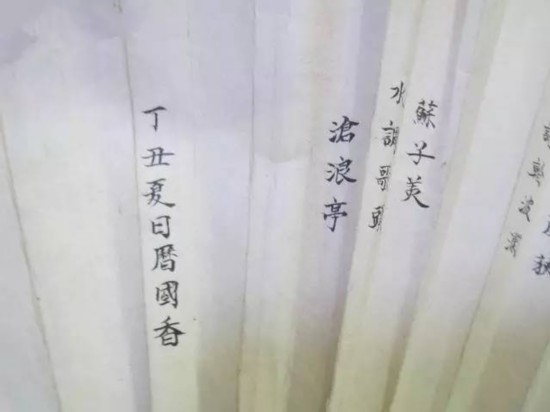 蘇子美
水調歌頭
滄浪亭
丁丑夏日暦國香